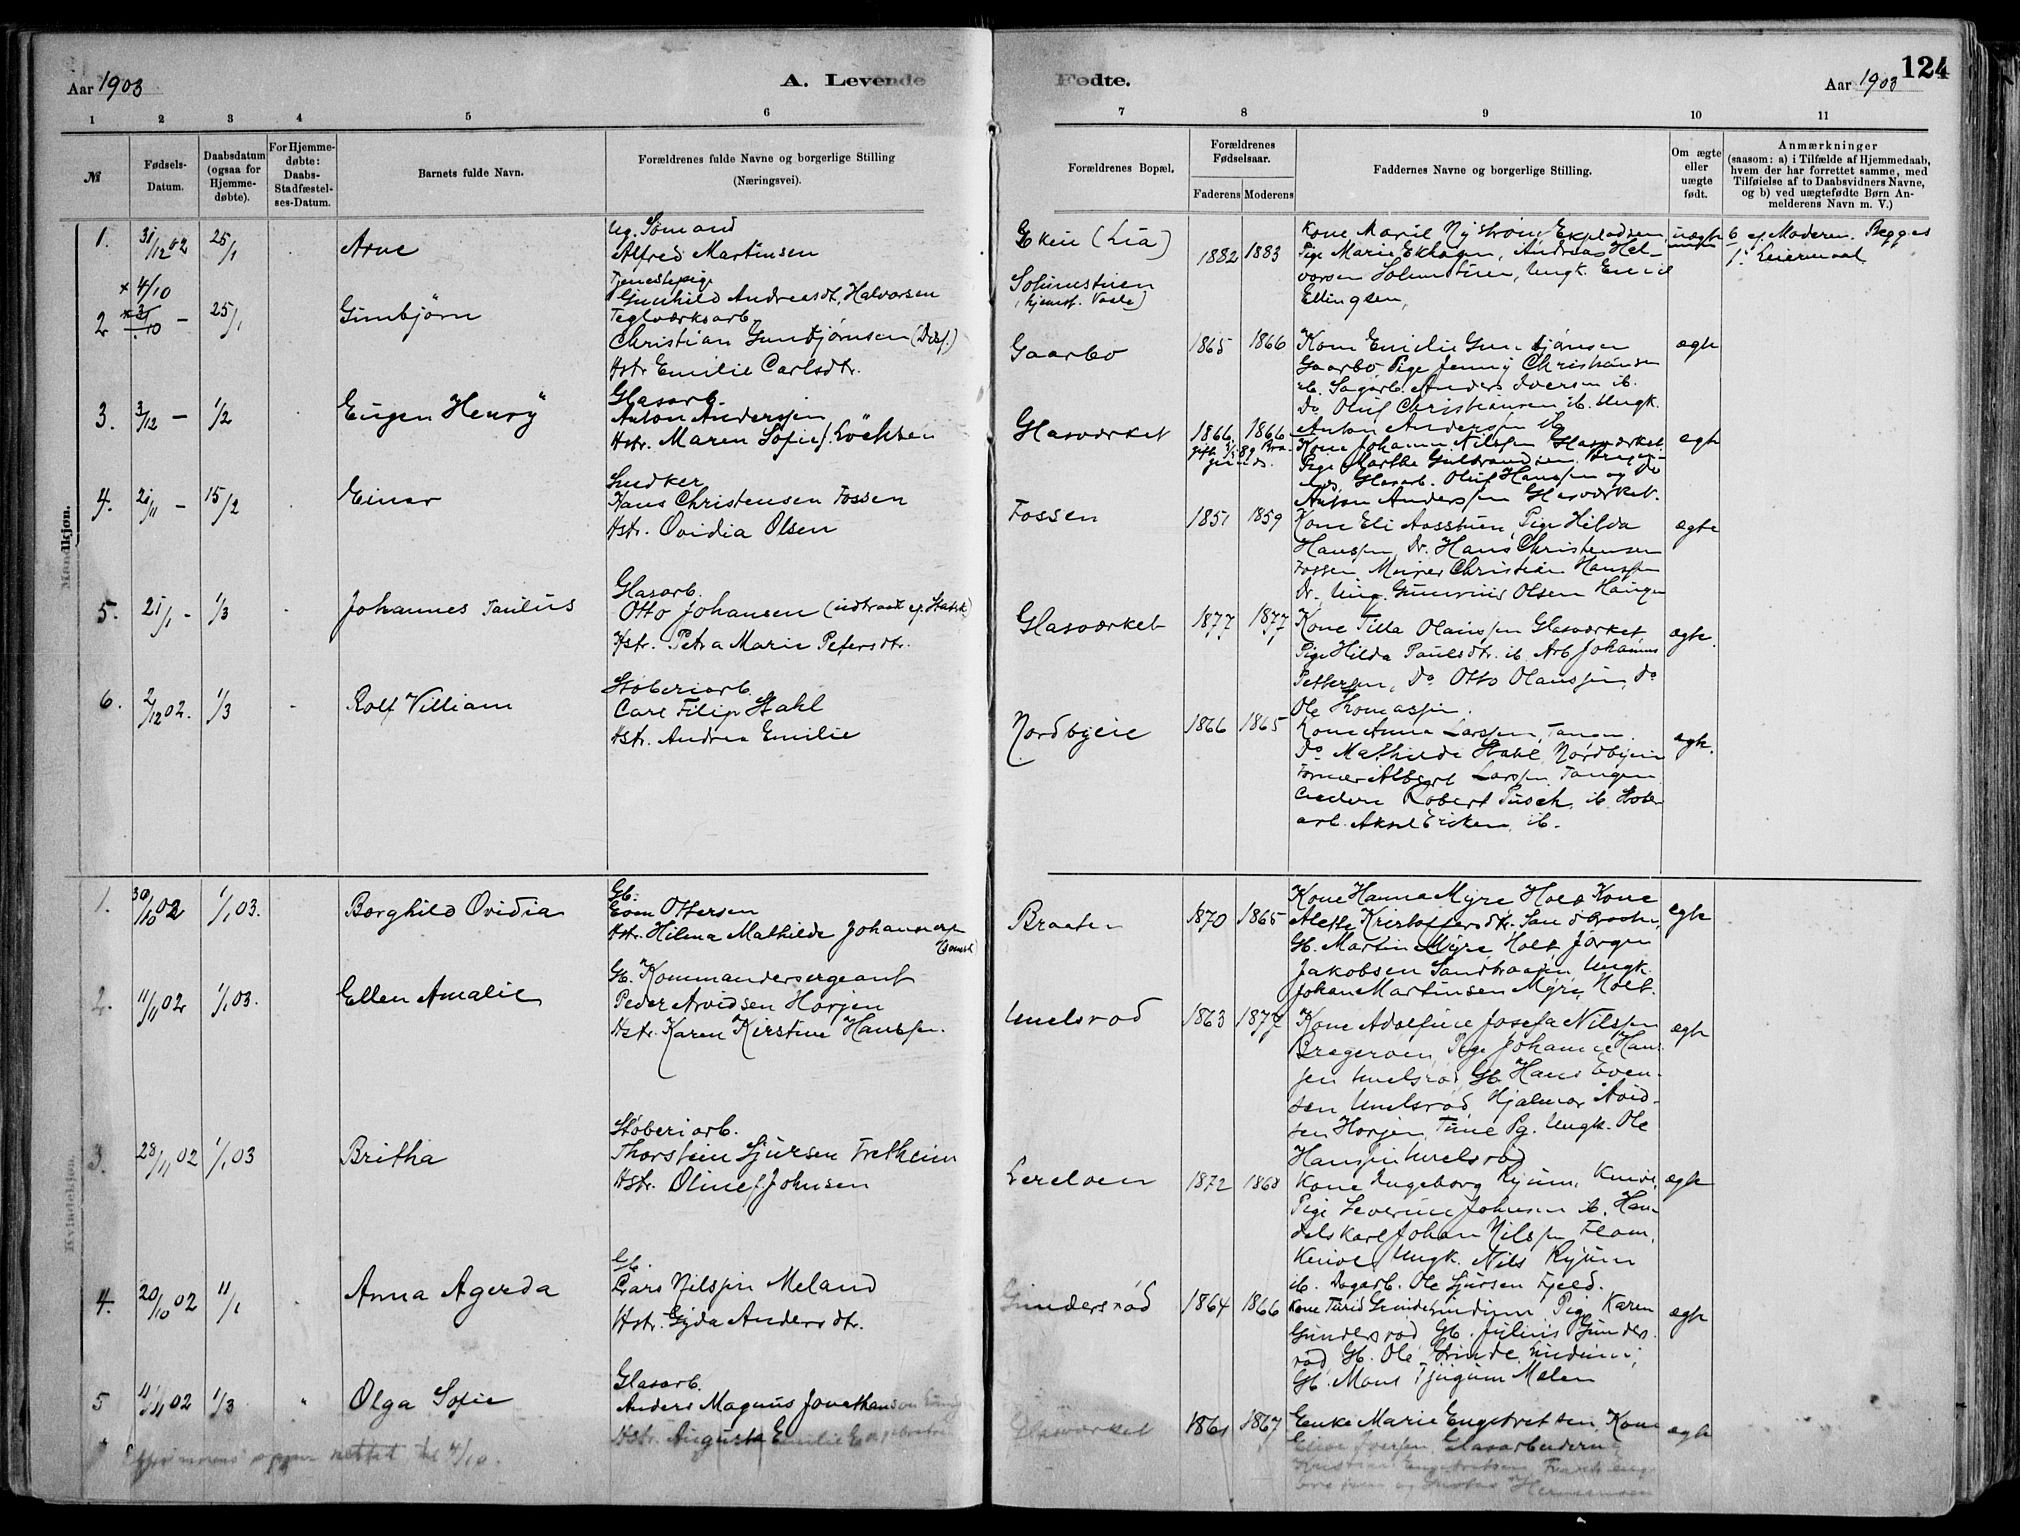 Aar 1903
A. Levende
Fødte.
Aar 1903
124
1 2 3 4 5 6 7 8 9 10 11
№
Fødsels-
Datum.
Daabsdatum
(ogsaa for
Hjemme-
døbte).
For Hjemme-
døbte:
Daabs-
Stadfæstel-
ses-Datum.
Barnets fulde Navn.
Forældrenes fulde Navne og borgerlige Stilling
(Næringsvei).
Forældrenes Bopæl.
Forældrenes
Fødselsaar.
Faderens Moderens
Faddernes Navne og borgerlige Stilling.
Om ægte
eller
uægte
født.
Anmærkninger
(saasom: a) i Tilfælde af Hjemmedaab,
hvem der har forrettet samme, med
Tilføielse af to Daabsvidners Navne,
og b) ved uægtefødte Børn An-
melderens Navn m. V.)
Mandkjøn.
1. 31/12 02 25/1 Arne
Ug. Sømand
Alfred Martinsen
Tjenestepige
Gunhild Andreasdt. Halvorsen
Ekeie (Lia)
1882 1883
Kone Marie Nystrøm
Pige Marie Ekhagen, Andreas Hal-
vorsen Solumstuen, Ungk. Emil
Ellingsen,
uægte
af Moderen. Begges
1. Leiermaal
x 4/10
2 25/1 Gunbjørn
Teglværksarb.
Christian Gunbjørnsen
Hstr. Emilie Carlsdtr.
Gaarbo
1865 1866
Kone Emilie Gunbjørnsen
Gaarbo Pige Jenny Christiansen
ib. Sagarb. Anders Iversen ib.
Do Oluf Christiansen ib. Ungk.
Anton Andersen
ægte
3. 3/12 – 1/2 Eugen Henry
Glasarb.
Anton Anderssen
Hstr. Maren Sofie
Glasværket
1866 1866
Kone Johanne Nilssen Glasværket
Pige Marthe
Glasarb. Oluf Hanssen og Do
Anton Anderssen Glasværket.
ægte
4. 21/11 – 15/2 Einar
Snedker
Hans Christensen Fossen
Hstr. Ovidia Olsen
Fossen
1851 1859
Kone Eli Aasstuen, Pige Hilda
Hanssen, Do. Hans Christensen
Fossen, Murer Christian Hanssen
Do. Ung. Olsen Haugen
ægte
5. 21/1 – 1/3 Johannes Paulus
Glasarb.
Otto Johansen (indtraadt af Statsk)
Hstr. Petra Marie Petersdtr.
Glasværket
1877 1877
Kone Tilla Olaussen Glasværket
Pige Hilda Paulsdtr. ib. Arb. Johannes
Pettersen, Do Otto Olaussen, Do
Ole Thomassen.
ægte.
6. 2/12 02. 1/3 Rolf Villiam
Støberiarb.
Carl Filip Stahl
Hstr. Andrea Emilie
Nordbyeie
1866 1865
Kone Anna Larssen, Tangen.
Do Mathilde Stahl, Nordbyeie
Former Albert Larssen Tangen
Robert Pusch, ib. Støberi-
arb. Aksel Eriksen, ib.
ægte.
Kvindekjøn.
1. 30/10 02 1/1 03. Borghild Ovidia
Gb.
Even Ottersen
Hstr. Hilma Mathilde Johannesen
Braaten
1870 1865
Kone Hanna Myre Holt Kone
Alette Kristoffersdtr. Sandbraaten,
Gb. Martin Myre, Holt, Jørgen
Jakobsen Sandbraaten, Ungk.
Johan Martinsen Myre, Holt.
ægte
2. 11/11 02 1/1 03. Ellen Amalie
Gb. Kommandersergeant
Peder Arvidsen Horjen
Hstr. Karen Kirstine Hanssen.
Unelsrød
1863 1877
Kone Adolfine Josefa Nilssen
Bregeroen, Pige Johanne Han-
sen Unelsrød Gb. Hans Even-
sen Unelsrød, Hjalmar Avid-
sen Horjen, Tune Pg. Ungk. Ole
Hanssen Unelsrød
ægte
3. 28/11 02 1/1 03 Britha
Støberiarb.
Thorstein Sjursen Fretheim
Hstr. Oline f. Johnsen
Lereloen
1872 1868
Kone Ingeborg Ryum, Knive,
Pige Severine Johnsen ib. Han-
delskarl Johan Nilsen Flom,
Knive, Ungk. Nils Ryum
ib. Dagarb. Ole Sjursen Fjeld.
ægte
4. 20/10 02 11/1 Anna Agerda
Gb.
Lars Nilssen Meland
Hstr. Gyda Andersdtr.
Gundersrød
1864 1866
Kone Turid Grinde Pige Karen
Gundersrød Gb. Julius Gunders-
rød, Gb. Ole Grinde,
Gb. Mons Tjugum Melen
ægte
5 11/11 02 1/3 " Olga Sofie
Glasarb.
Anders Magnus Jonathanson
Hstr. Augusta Emilie
Glasværket
1861 1867
Enke Marie Engebretsen, Kone
Eline Iversen, Glasarbeiderne
Kristian Engebretsen,
og Gustav Hermansen
ægte
rettet til 4/10.